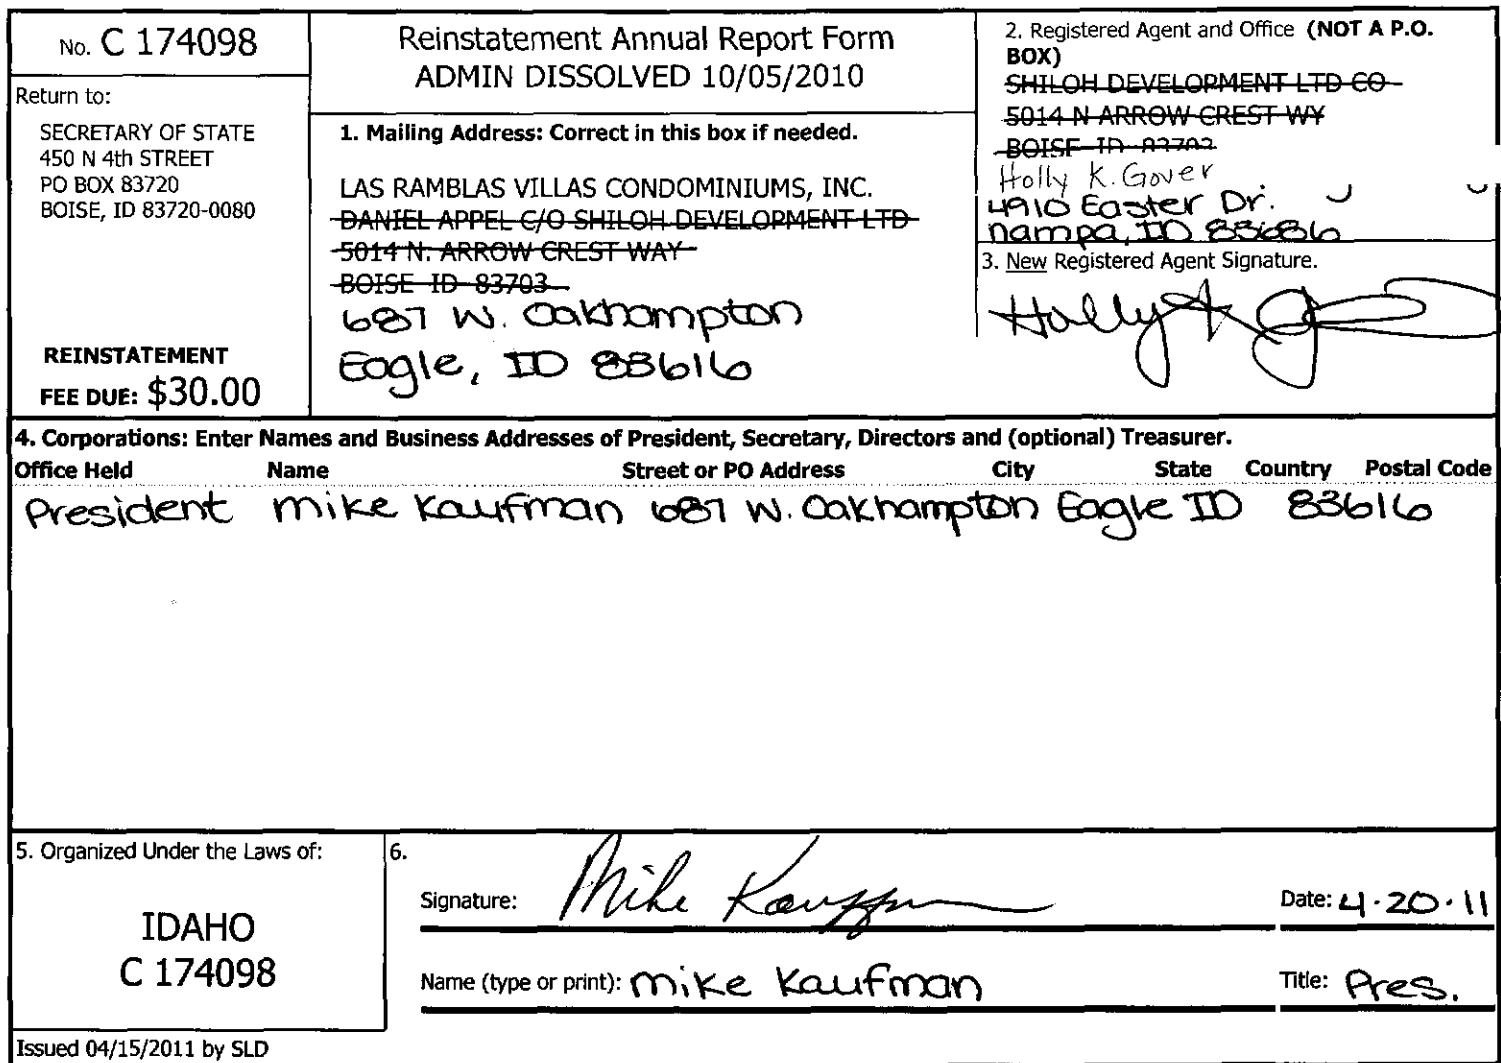 No. C 174098
Return to:
SECRETARY OF STATE
450 N 4th STREET
PO BOX 83720
BOISE, ID 83720-0080
REINSTATEMENT
FEE DUE: $30.00
Reinstatement Annual Report Form
ADMIN DISSOLVED 10/05/2010
1. Mailing Address: Correct in this box if needed.
LAS RAMBLAS VILLAS CONDOMINIUMS, INC.
DANIEL APPEL C/O SHILOH DEVELOPMENT LTD
5014 N. ARROW CREST WAY
BOISE ID 83703
687 W. Oakhampton
Eagle, ID 83616
2. Registered Agent and Office (NOT A P.O.
BOX)
SHILOH DEVELOPMENT LTD CO
5014 N ARROW CREST WY
BOISE ID 83703
Holly K. Gover
4910 Easter Dr.
nampa, ID 83686
3. New Registered Agent Signature.
Holly K G
4. Corporations: Enter Names and Business Addresses of President, Secretary, Directors and (optional) Treasurer.
Office Held Name Street or PO Address City State Country Postal Code
President Mike Kaufman 687 W. Oakhampton Eagle ID 83616
5. Organized Under the Laws of:
IDAHO
C 174098
6.
Signature: Mike Kaufman Date: 4.20.11
Name (type or print): Mike Kaufman Title: Pres.
Issued 04/15/2011 by SLD